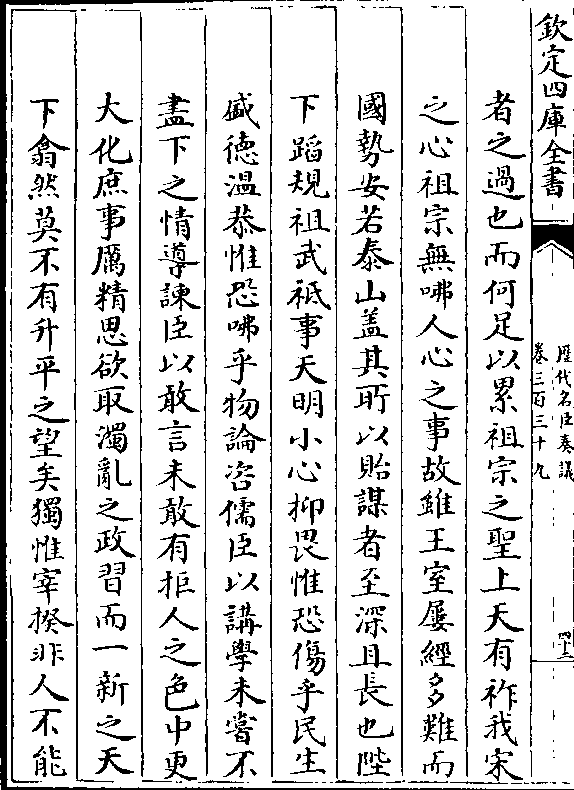 欽定四庫全書
歷代名臣奏議
卷三百三十九
四十三
者之過也而何足以累祖宗之聖上天有祚我宋
之心祖宗無咈人心之事故雖王室屢經多難而
國勢安若泰山蓋其所以貽謀者至深且長也陛
下蹈規祖武祇事天明小心抑畏惟恐傷乎民生
盛德溫恭惟恐咈乎物論咨儒臣以講學未嘗不
盡下之情導諫臣以敢言未敢有拒人之色中更
大化庶事厲精思欲取濁亂之政習而一新之天
下翕然莫不有升平之望矣獨惟宰揆非人不能